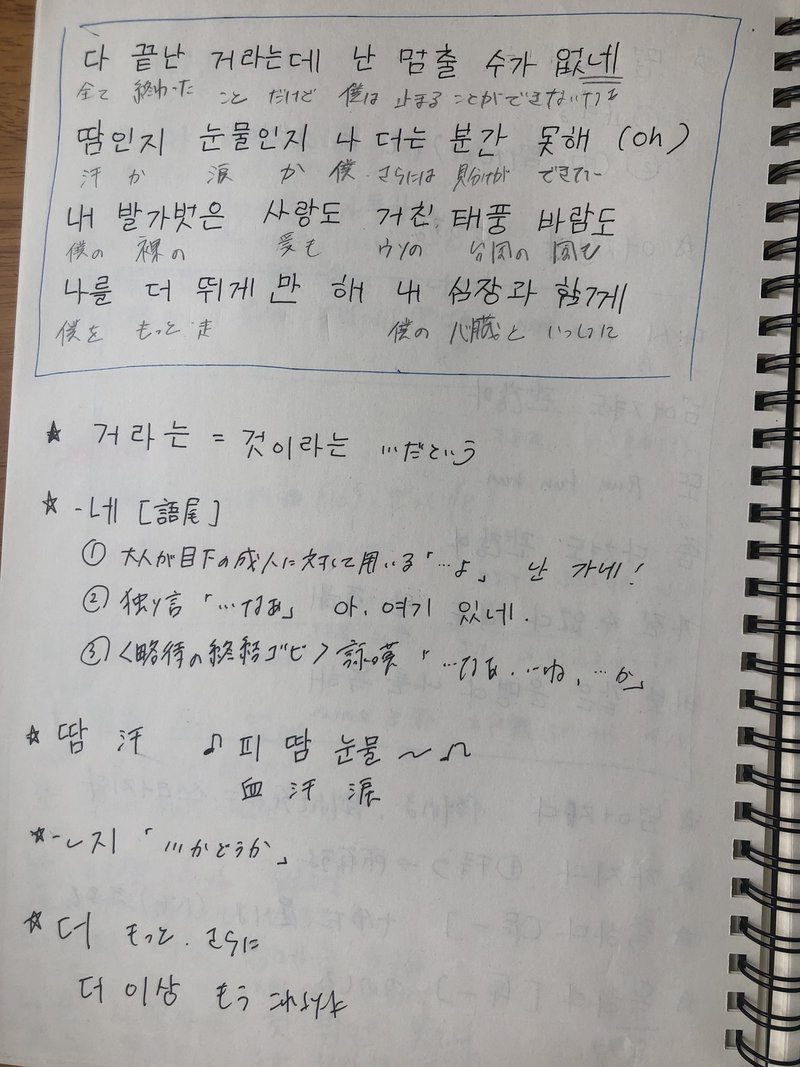 다 끝난 거라는데 난 멈출 수가 없네
全て 終わった こと だけど 僕は 止まる ことができないなぁ
땀인지 눈물인지 나 더는 분간 못해 (oh)
汗 か 涙 か 僕 さらには 見分けが できてー
내 발가벗은 사랑도 거친 태풍 바람도
僕の 裸の 愛も 台風の 風も
나를 더 뛰게만 해 내 심장과 함께
僕を もっと 走 僕の 心臓と いっしょに
☆ 거라는 = 것이라는 …だという
☆ -네 [語尾]
① 大人が目下の成人に対して用いる「…よ」 난 가네!
② 独り言「…なぁ」 아, 여기 있네.
③ <略待の終結ゴビ> 詠嘆「…なぁ、…ね、…か」
☆ 땀 汗 ♪ 피 땀 눈물 ～♫
血 汗 涙
☆ -ㄴ지 「…かどうか」
☆ 더 もっと、さらに
더 이상 もう これ以上